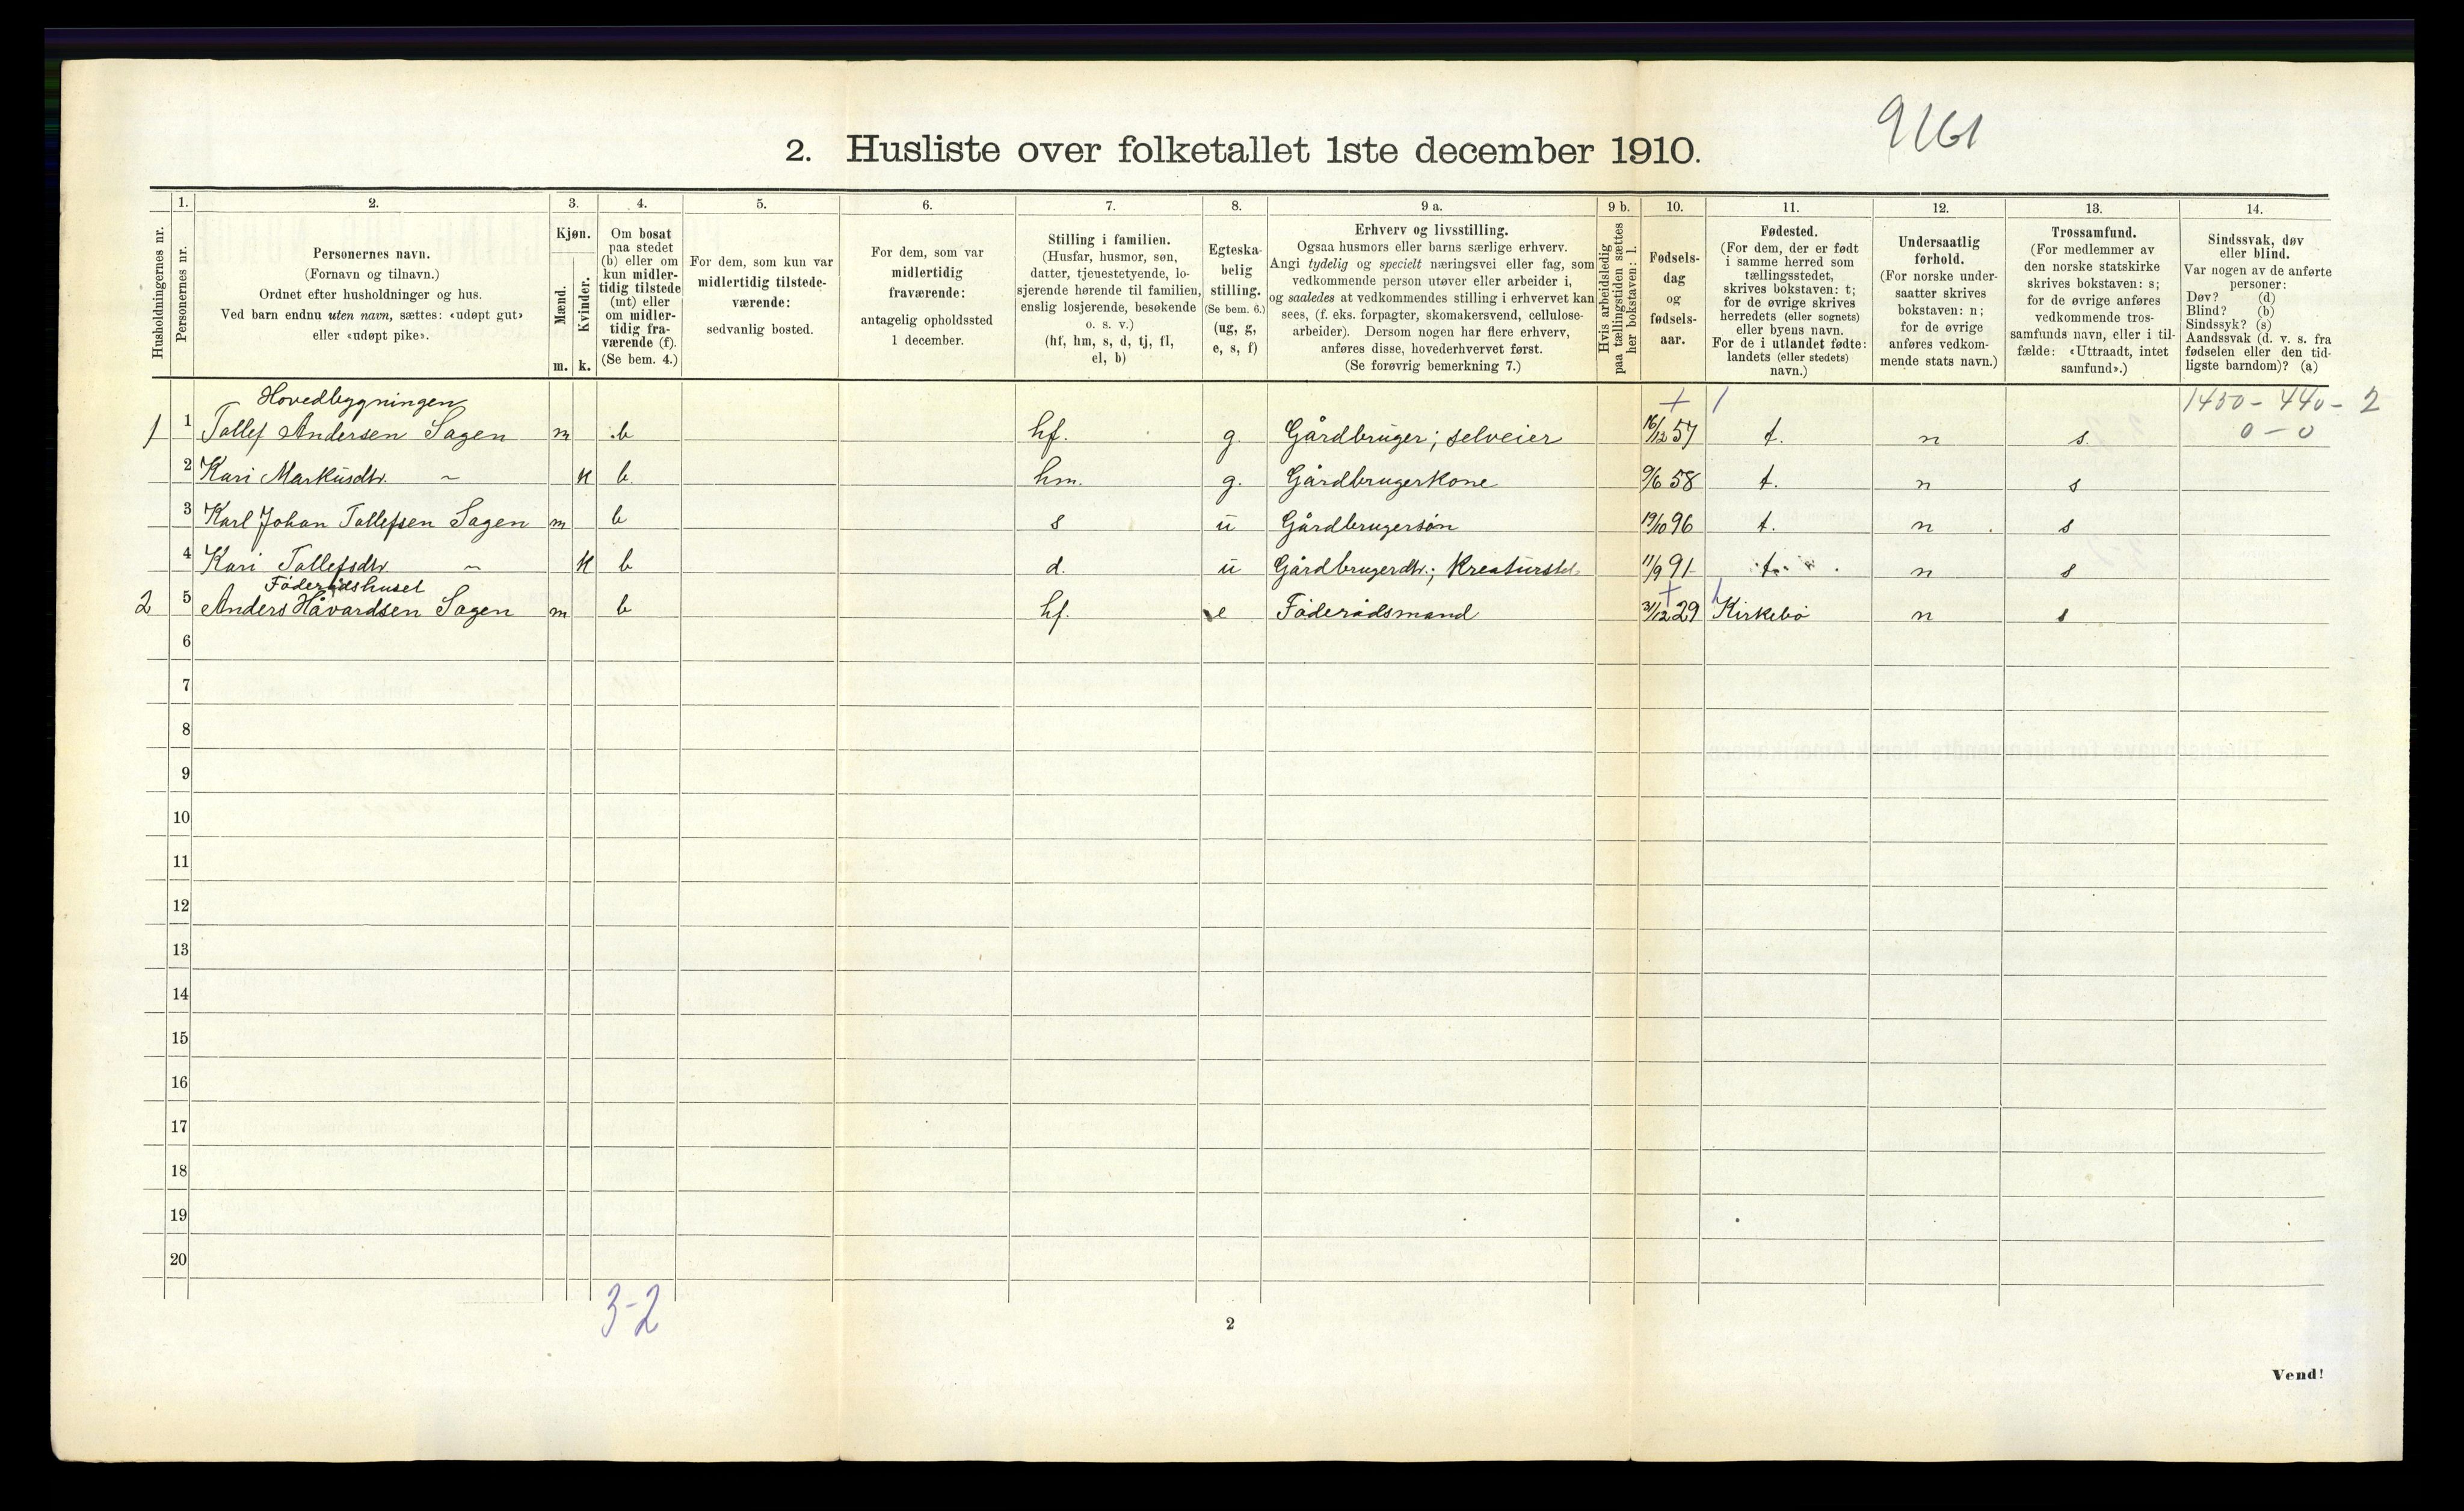 9161
2. Husliste over folketallet 1ste december 1910.
1. 2. 3. 4. 5. 6. 7. 8. 9 a. 9 b. 10. 11. 12. 13. 14.
Husholdningernes nr.
Personernes nr.
Personernes navn.
(Fornavn og tilnavn.)
Ordnet efter husholdninger og hus.
Ved barn endnu uten navn, sættes: «udøpt gut»
eller «udøpt pike».
Kjøn.
Mænd.
Kvinder.
m. k.
Om bosat
paa stedet
(b) eller om
kun midler-
tidig tilstede
(mt) eller
om midler-
tidig fra-
værende (f).
(Se bem. 4.)
For dem, som kun var
midlertidig tilstede-
værende:
sedvanlig bosted.
For dem, som var
midlertidig
fraværende:
antagelig opholdssted
1 december.
Stilling i familien.
(Husfar, husmor, søn,
datter, tjenestetyende, lo-
sjerende hørende til familien,
enslig losjerende, besøkende
o. s. v.)
(hf, hm, s, d, tj, fl,
el, b)
Egteska-
belig
stilling.
(Se bem. 6.)
(ug, g,
e, s, f)
Erhverv og livsstilling.
Ogsaa husmors eller barns særlige erhverv.
Angi tydelig og specielt næringsvei eller fag, som
vedkommende person utøver eller arbeider i,
og saaledes at vedkommendes stilling i erhvervet kan
sees, (f. eks. forpagter, skomakersvend, cellulose-
arbeider). Dersom nogen har flere erhverv,
anføres disse, hovederhvervet først.
(Se forøvrig bemerkning 7.)
Hvis arbeidsledig
paa tællingstiden sættes
her bokstaven: l.
Fødsels-
dag
og
fødsels-
aar.
Fødested.
(For dem, der er født
i samme herred som
tællingsstedet,
skrives bokstaven: t;
for de øvrige skrives
herredets (eller sognets)
eller byens navn.
For de i utlandet fødte:
landets (eller stedets)
navn.)
Undersaatlig
forhold.
(For norske under-
saatter skrives
bokstaven: n;
for de øvrige
anføres vedkom-
mende stats navn.)
Trossamfund.
(For medlemmer av
den norske statskirke
skrives bokstaven: s;
for de øvrige anføres
vedkommende tros-
samfunds navn, eller i til-
fælde: «Uttraadt, intet
samfund».)
Sindssvak, døv
eller blind.
Var nogen av de anførte
personer:
Døv? (d)
Blind? (b)
Sindssyk? (s)
Aandssvak (d. v. s. fra
fødselen eller den tid-
ligste barndom)? (a)
Hovedbygningen 1450 - 440 - 2
1 1 Tallef Andersen Sagen m b hf. g. Gårdbruger; selveier 16/12 57 t. n s. 0 - 0
2 Kari Markusdtr. ~ k b. hm. g. Gårdbrugerkone 9/6 58 t. n s
3 Karl Johan Tallefsen Sagen m b s u Gårdbrugersøn 19/10 96 t. n s
4 Kari Tallefsdtr. ~ k b d. u Gårdbrugerdtr.; Kreaturstel 11/9 91 t. n s
Föderådshuset
2 5 Anders Håvardsen Sagen m b hf. e Föderådsmand 31/12 29 Kirkebö n s
6
7
8
9
10
11
12
13
14
15
16
17
18
19
20
3-2
2
Vend!